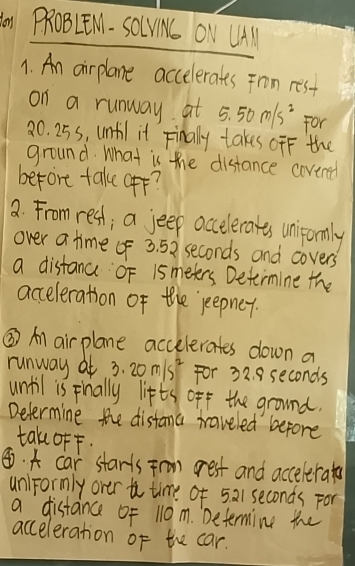 PROBLEM-SOLVING ON UAM
1. An airplane accelerates from rest
on a runway at 5.50 m/s² for
20.25 s, until it finally takes off the
ground. What is the distance covered
before take off?
2. From rest, a jeep accelerates uniformly
over a time of 3.52 seconds and covers
a distance of 15 meters. Determine the
acceleration of the jeepney.
③ An airplane accelerates down a
runway at 3.20 m/s² for 32.9 seconds
until is finally lifts off the ground.
Determine the distance traveled before
take off.
④. A car starts from rest and accelerates
uniformly over the time of 5.21 seconds for
a distance of 110 m. Determine the
acceleration of the car.